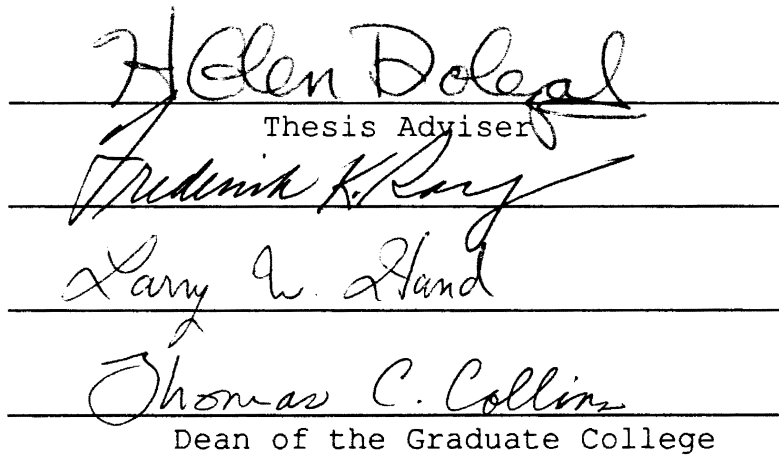 H Glen Dolezal
Thesis Adviser
Frederick K. Ray
Larry W. Hand
Thomas C. Collins
Dean of the Graduate College